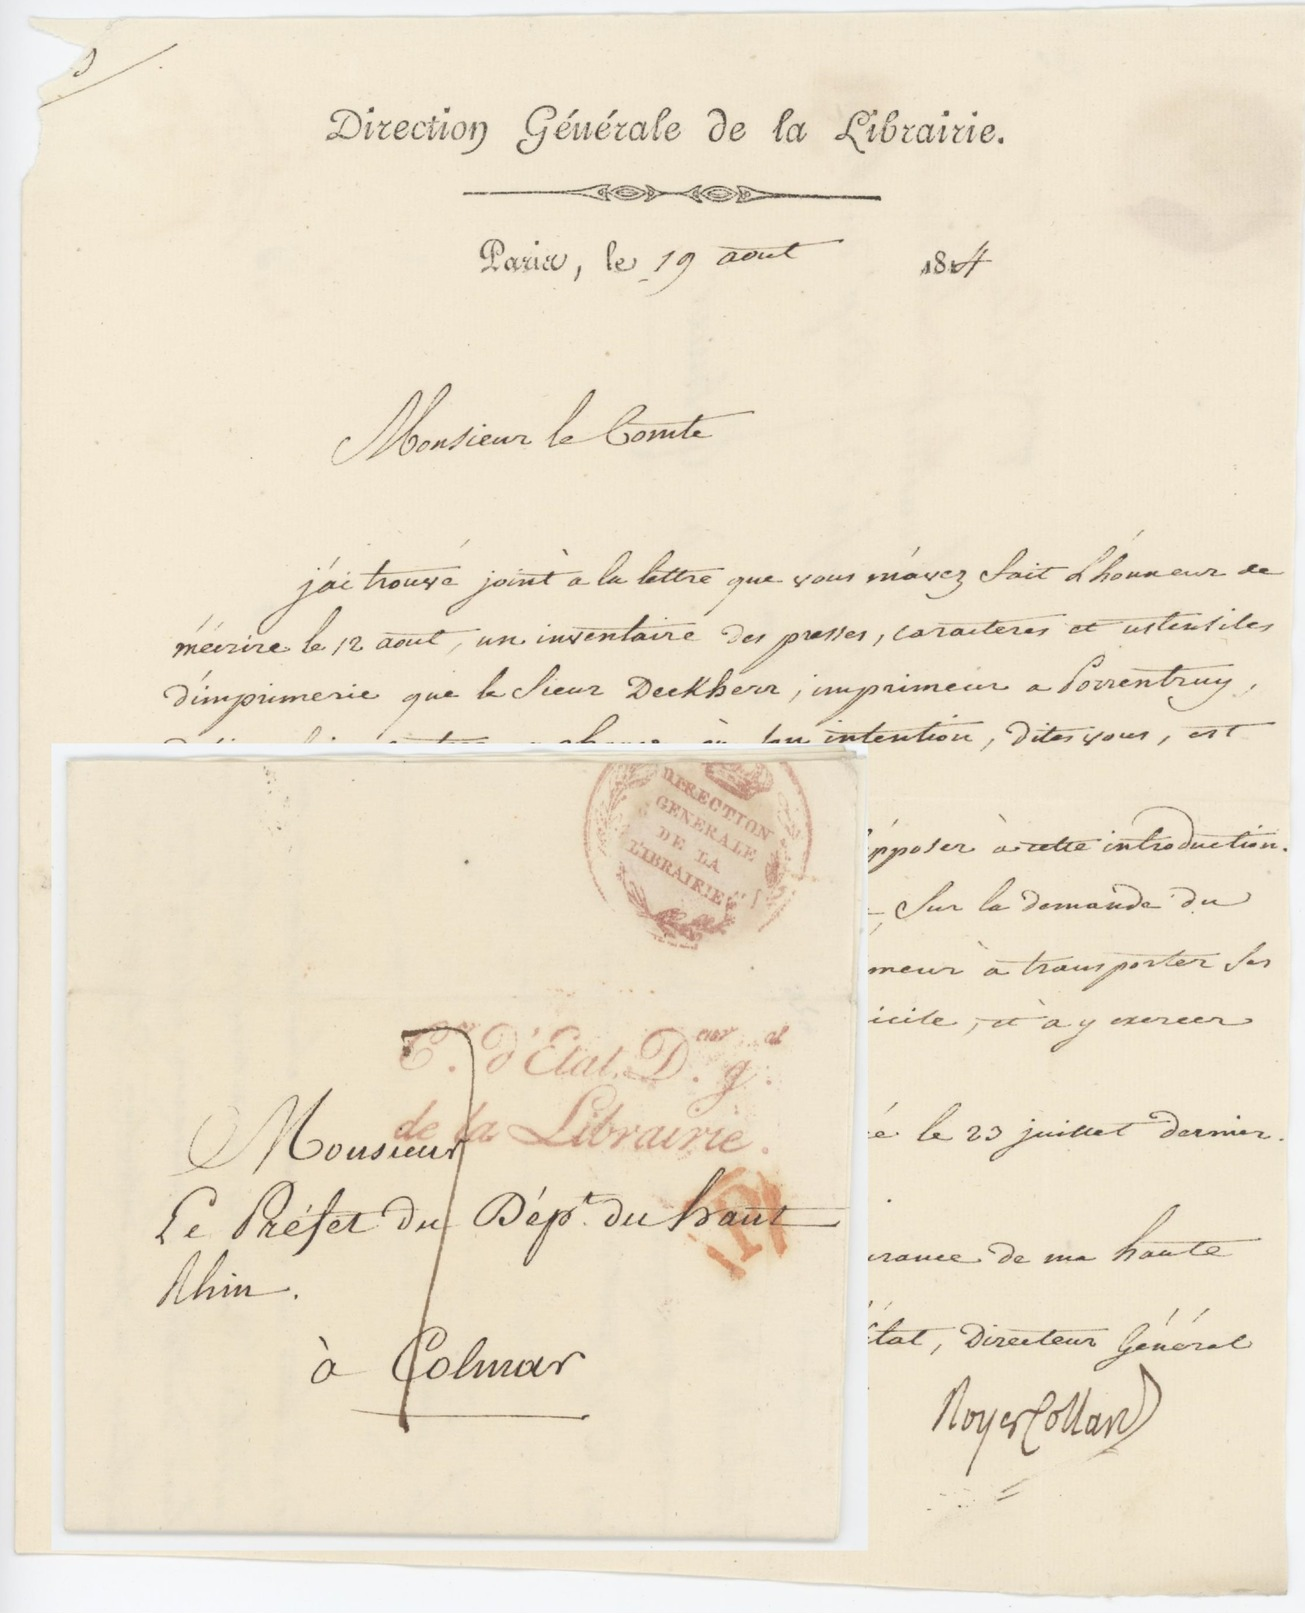 Direction Générale de la Librairie.
Paris, le 19 aout 1814
Monsieur le Comte
j'ai trouvé joint a la lettre que vous m'avez fait l'honneur de
m'écrire le 12 aout, un inventaire des presses, caracteres et ustensiles
d'imprimerie que le Sieur Deckherr, imprimeur a Porrentruy,
intention, dites vous, est
opposer à cette introduction.
Sur la demande du
meur à transporter ses
icile, et à y exercer
é le 23 juillet dernier.
urance de ma haute
état, Directeur Général
Royer Collard
DIRECTION
GENERALE
DE LA
LIBRAIRIE
C.er d'Etat, D.eur g.al
de la Librairie.
Monsieur
Le Préfet du Dépt. du haut
Rhin.
à Colmar